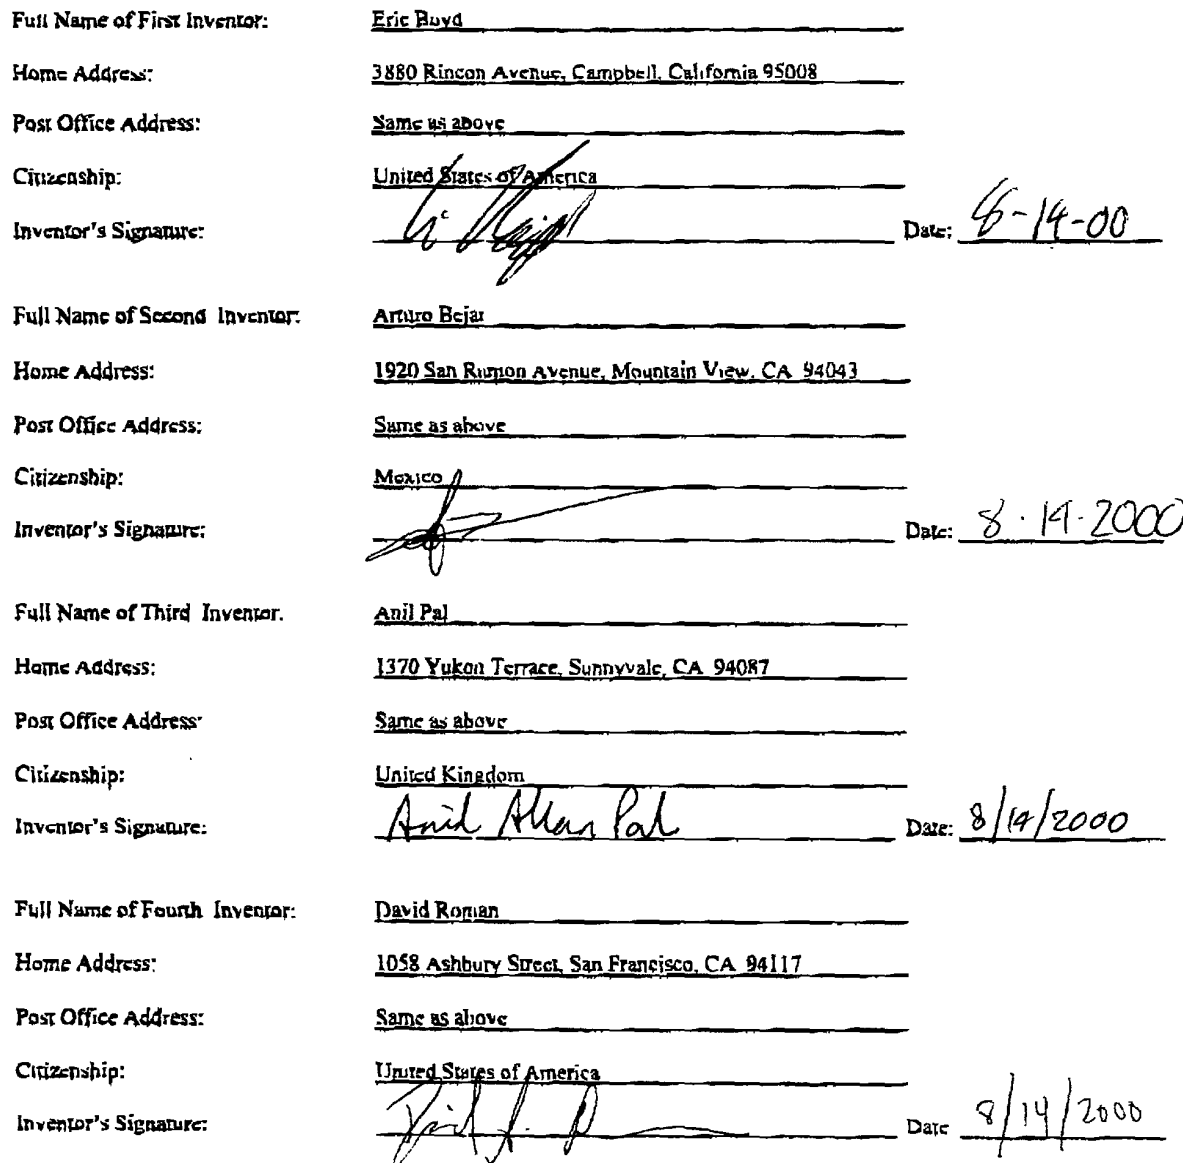 Full Name of First Inventor: Eric Boyd
Home Address: 3880 Rincon Avenue, Campbell, California 95008
Post Office Address: Same as above
Citizenship: United States of America
Inventor's Signature: Date: 8-14-00
Full Name of Second Inventor: Arturo Bejar
Home Address: 1920 San Ramon Avenue, Mountain View, CA 94043
Post Office Address: Same as above
Citizenship: Mexico
Inventor's Signature: Date: 8.14.2000
Full Name of Third Inventor. Anil Pal
Home Address: 1370 Yukon Terrace, Sunnyvale, CA 94087
Post Office Address: Same as above
Citizenship: United Kingdom
Inventor's Signature: Anil Allan Pal Date: 8/14/2000
Full Name of Fourth Inventor: David Roman
Home Address: 1058 Ashbury Street, San Francisco, CA 94117
Post Office Address: Same as above
Citizenship: United States of America
Inventor's Signature: Date 8/14/2000